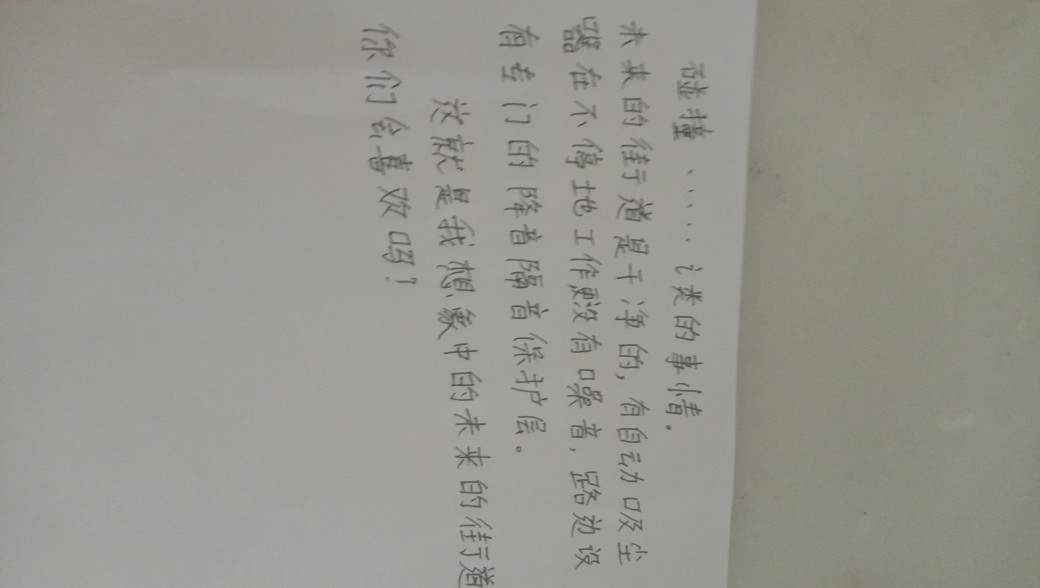 碰撞……之类的事情。
未来的街道是干净的,有自动吸尘
器在不停地工作更没有噪音,路边设
有专门的降音隔音保护层。
这就是我想象中的未来的街道
你们会喜欢吗?